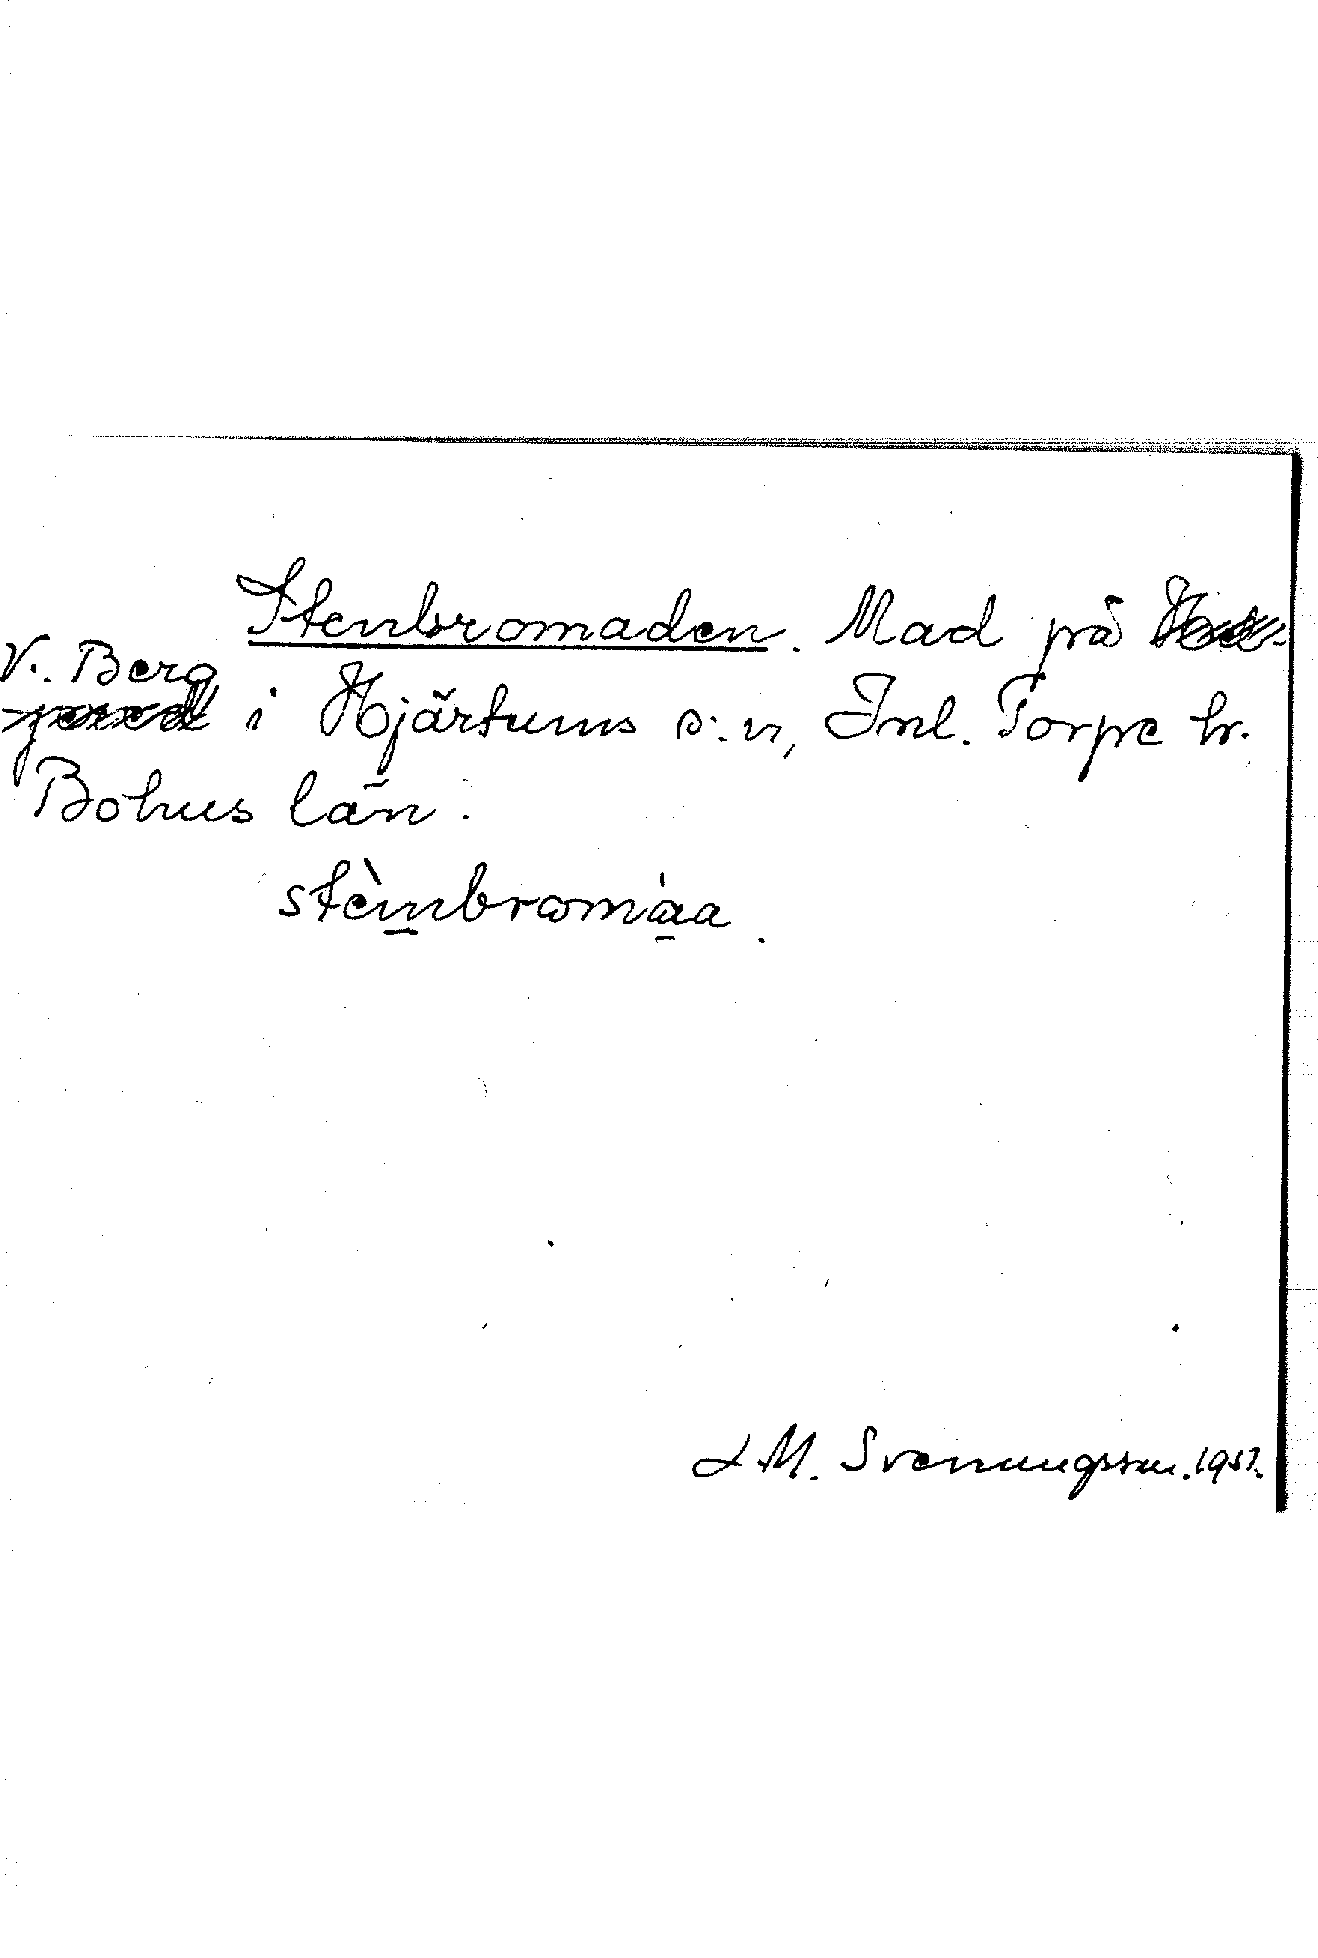 Stenbromaden. Mad på
V. Berg
i Hjärtums s:n, Inl. Torpe hr.
Bohus län.
stèmbromàa.
L M. Svenungsson. 1957.